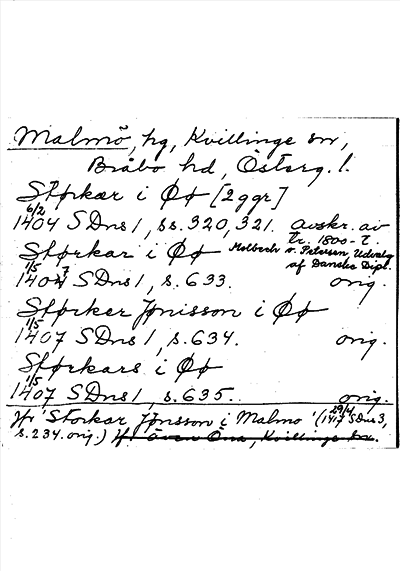 Malmö, hg, Kvillinge sn,
Bråbo hd, Österg. l.
Størkær i Øø [2 ggr]
6/2 1404 SDns 1, ss. 320, 321. avskr. av tr. 1800-t.
Størkar i Øø Molbech o. Petersen Udvalg af Danske Dipl.
1/5 1407 SDns 1, s. 633. orig.
Størker Jonisson i Øø
1/5 1407 SDns 1, s. 634. orig.
Størkars i Øø
1/5 1407 SDns 1, s. 635. orig.
Jfr 'Storkar Jønsson i Malmo' (29/4 1417 SDns 3,
s. 234. orig.) Jfr även Öna, Kvillinge sn.